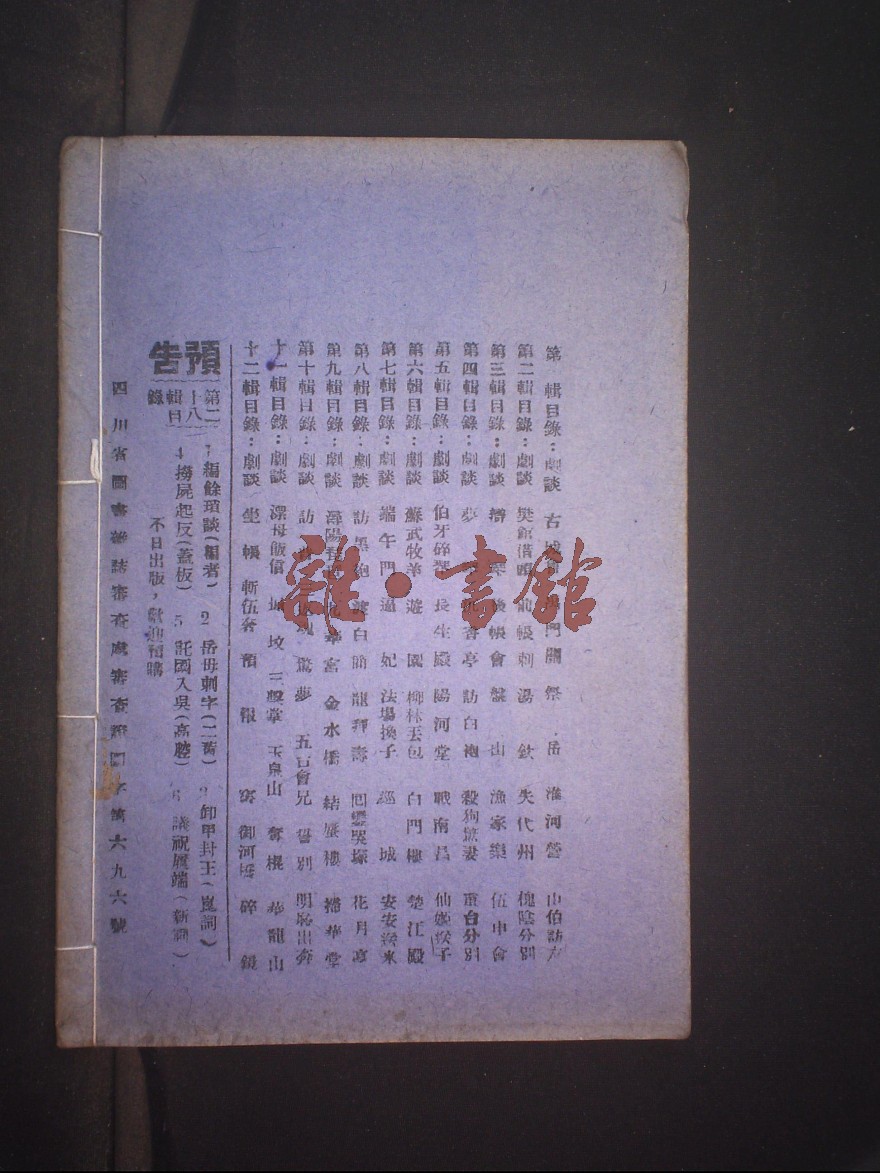 第一輯目錄：劇談 古城 祭 岳 淮河營 山伯訪友
第二輯目錄：劇談 帳刺湯 失代州 槐陰分別
第三輯目錄：劇談 帳會 山 漁家樂 伍申會
第四輯目錄：劇談 夢 香亭 訪白袍 殺狗驚妻 重台分別
第五輯目錄：劇談 伯牙碎琴 長生殿 陽河堂 戰南昌 仙姬送子
第六輯目錄：劇談 蘇武牧羊 遊 園 柳林丟包 白門樓 楚江殿
第七輯目錄：劇談 端午門 逼 妃 法場換子 巡 城 安安送米
第八輯目錄：劇談 訪 白 龍拜壽 回 哭塚 花月亭
第九輯目錄：劇談 潯陽 宮 金水橋 結蜃樓 華堂
第十輯目錄：劇談 訪 驚夢 五台會兄 別 明恥出奔
十一輯目錄：劇談 漂母飯信 城 墳 三擊掌 玉泉山 奪棍 華龍山
十二輯目錄：劇談 坐 帳 斬伍奢 預 報 御河橋 碎 鏡
預告
第二十八輯目錄
1 編餘瑣談(編者) 2 岳母刺字(二黃) 3 卸甲封王(崑詞)
4 撈屍起反(蓋板) 5 託國入吳(高腔) 6 議祝履端(新詞)
不日出版，歡迎預購
四川省圖書雜誌審查處審查證圖字第六九六號
雜·書館